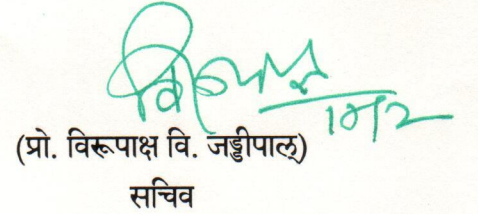 (प्रो. विरूपाक्ष वि. जड्डीपाल्)
सचिव